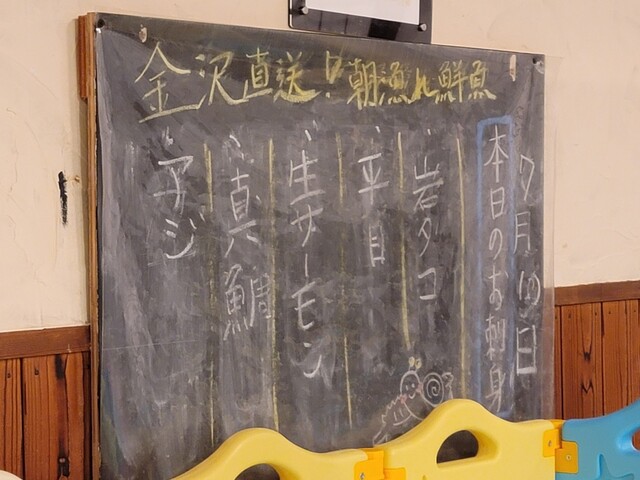 金沢直送!朝漁れ鮮魚
7月10日
本日のお刺身
、岩タコ
、平目
、生サーモン
、真鯛
、アジ